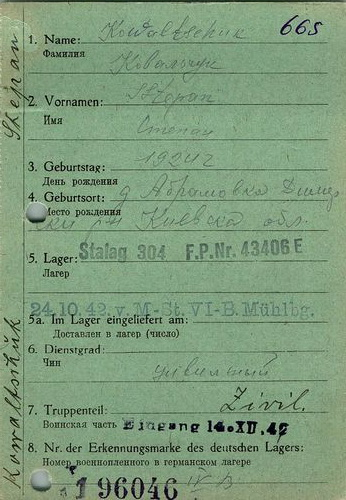 665
1. Name: Kowaltschuk
Фамилия
Ковальчук
2. Vornamen: Stepan
Имя
Степан
3. Geburtstag: 1924 г
День рождения
4. Geburtsort: д Абрамовка
Место рождения
ский р-н Киевска обл.
5. Lager: Stalag 304 F.P.Nr. 43406 E
Лагер
24.10.42. v. M-St. VI-B. Mühlbg.
5a. Im Lager eingeliefert am:
Доставлен в лагер (число)
6. Dienstgrad:
Чин
цивильный
Zivil.
7. Truppenteil:
Воинская часть Eingang 14. XII. 42
8. Nr. der Erkennungsmarke des deutschen Lagers:
Номер военнопленного в германском лагере
196046 IV B
Kowaltschuk Stepan